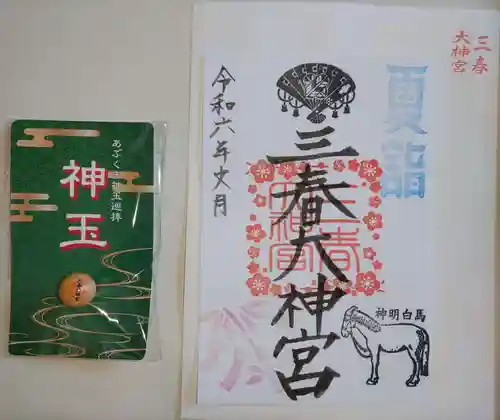 あぶくま神玉巡拝
神玉
三春
大神宮
夏詣
令和六年文月
三春大神宮
三春
大神宮
神明白馬